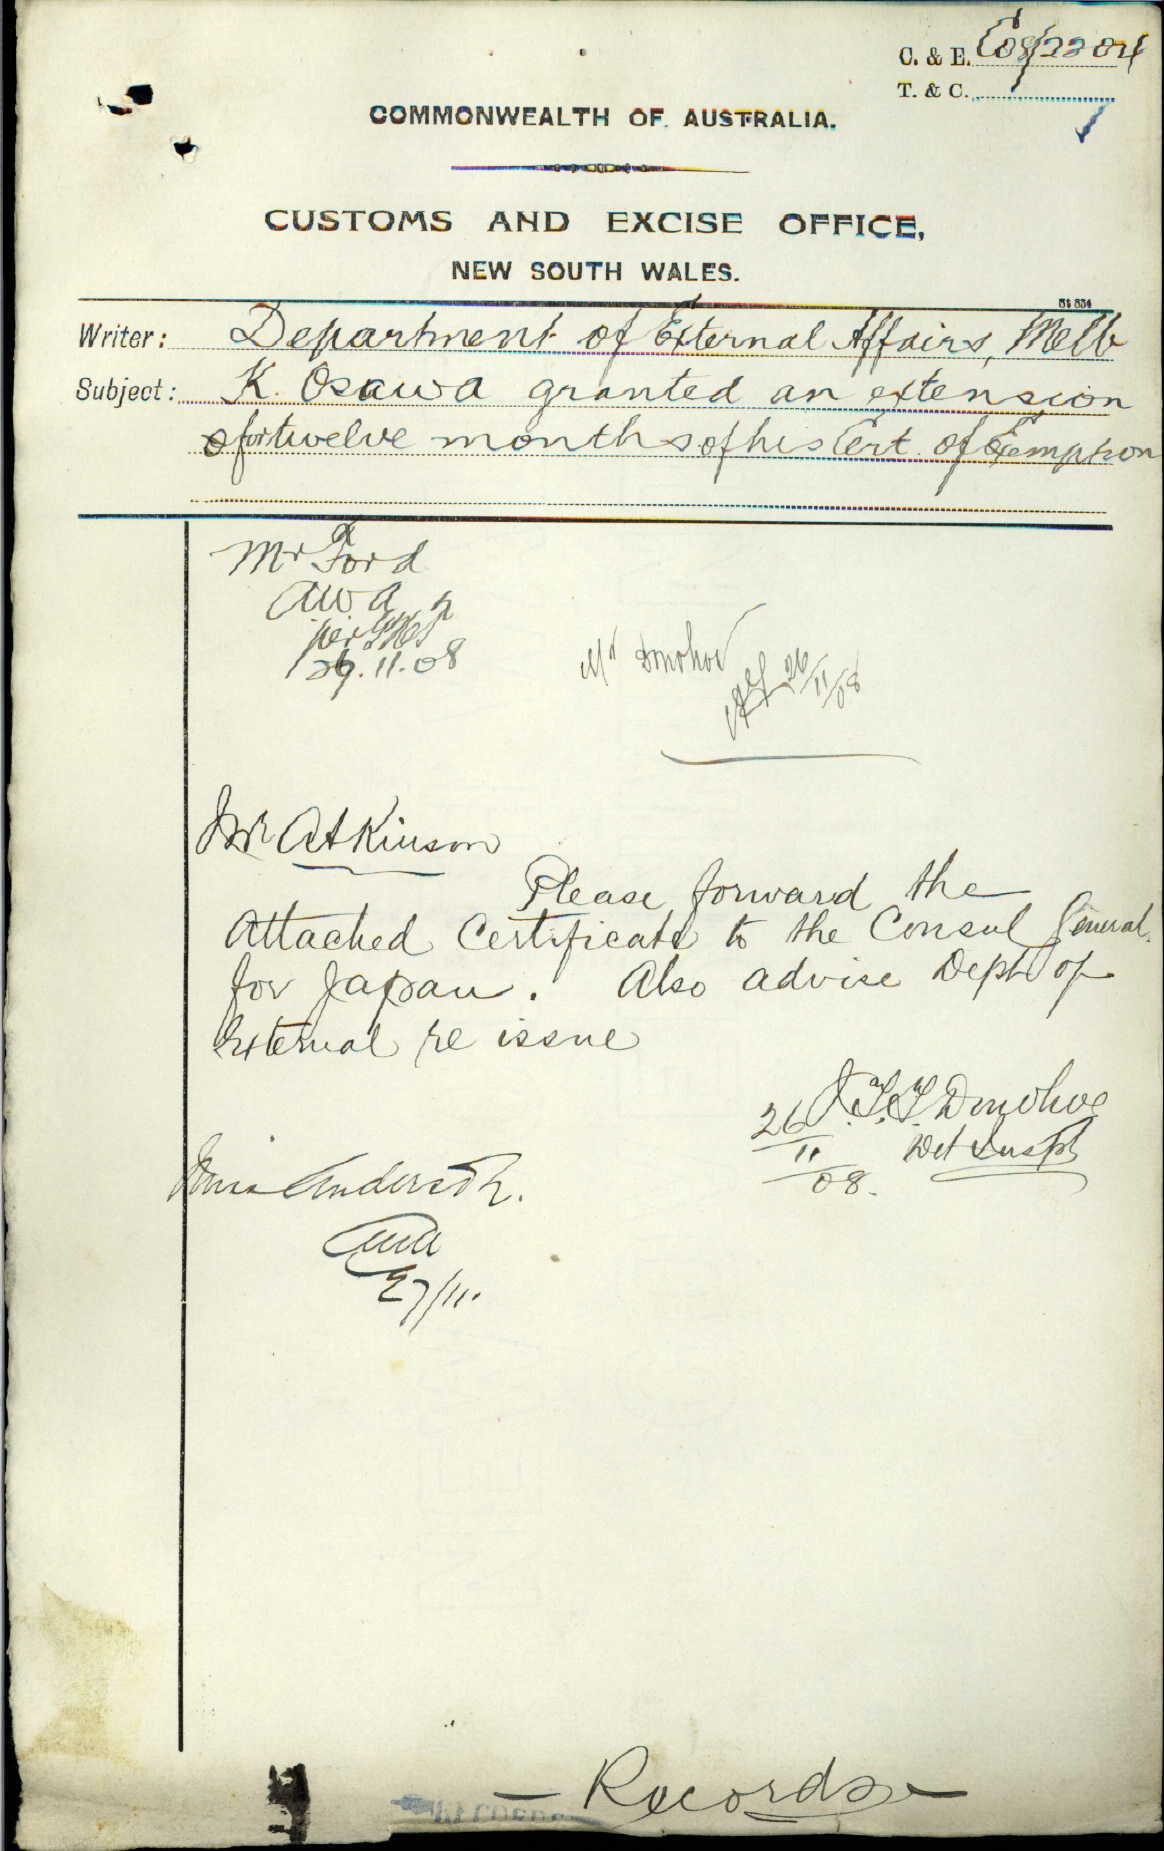 C. & E. C08/22304
T. & C.
COMMONWEALTH OF AUSTRALIA.
CUSTOMS AND EXCISE OFFICE,
NEW SOUTH WALES.
Writer: Department of External Affairs, Melb
Subject: K. Osawa granted an extension
for twelve months of his Cert. of Exemption
Mr Ford
AWA
per
26.11.08
Mr Donohoe
26/11/08
Mr Atkinson
Please forward the
Attached Certificate to the Consul General
for Japan. Also advise Dept of
External re issue
J. T. T. Donohoe
26/11/08.
Det Inspr
Miss Anderson.
AWA
27/11.
— Records —